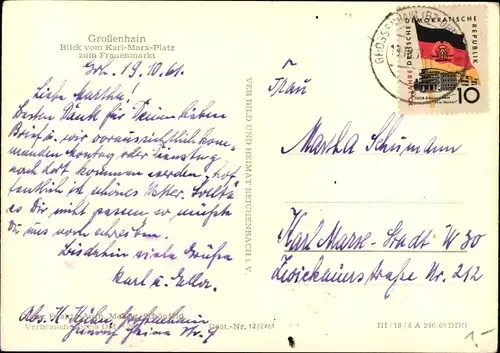 Großenhain
Blick vom Karl-Marx-Platz
zum Frauenmarkt
Grh. 19.10.61.
Liebe Martha!
Besten Dank für Deinen lieben
Brief u. wir voraussichtlich kom-
menden Montag oder Dienstag
nach dort kommen werden, hof-
fentlich ist schönes Wetter. Sollte
es Dir nicht passen so müßtest
Du uns noch schreiben.
Bisdahin viele Grüße
Karl u. Ella.
Abs. K. Großenhain
Nr. 9
Verbraucherpreis
Best.-Nr. 12/2461
VEB BILD UND HEIMAT REICHENBACH I. V.
GROSSENHAIN
JAHRE DEUTSCHE DEMOKRATISCHE REPUBLIK
10
Frau
Martha Schumann
Karl-Marx-Stadt W 30
Zwickauerstraße Nr. 212
III/18/8 A 260.60 DDR
1.-